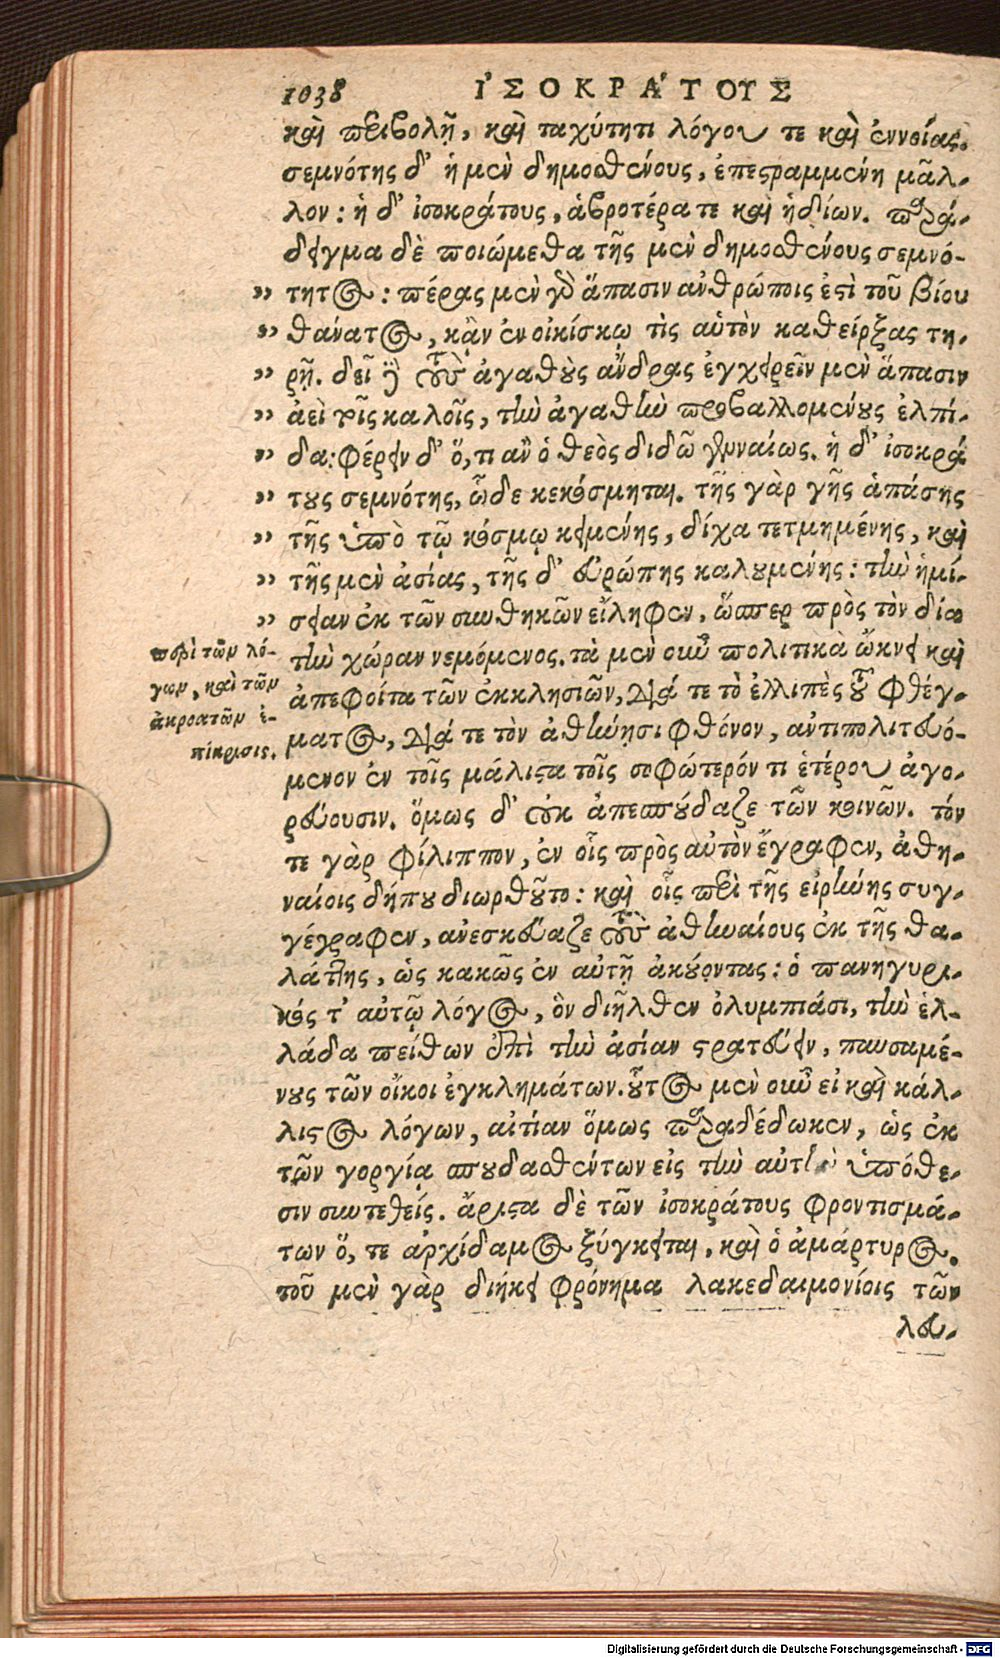 1038 ἸΣΟΚΡΆΤΟΥΣ
καὶ περιβολῇ, καὶ ταχύτητι λόγου τε καὶ ἐννοίας.
σεμνότης δ' ἡ μὲν δημοσθένους, ἐπεστραμμένη μᾶλ-
λον: ἡ δ' ἰσοκράτους, ἁβροτέρα τε καὶ ἡδίων. παρά-
δειγμα δὲ ποιώμεθα τῆς μὲν δημοσθένους σεμνό-
" τητος: πέρας μὲν γὰρ ἅπασιν ἀνθρώποις ἐστὶ τοῦ βίου
" θάνατος, κἂν ἐν οἰκίσκῳ τὶς αὑτὸν καθείρξας τη-
" ρῇ. δεῖ δὲ τοὺς ἀγαθοὺς ἄνδρας ἐγχειρεῖν μὲν ἅπασιν
" ἀεὶ τοῖς καλοῖς, τὴν ἀγαθὴν προβαλλομένους ἐλπί-
" δα: φέρειν δ' ὅ, τι ἂν ὁ θεὸς διδῶ γενναίως. ἡ δ' ἰσοκρά
" τους σεμνότης, ὧδε κεκόσμηται. τῆς γὰρ γῆς ἁπάσης
" τῆς ὑπὸ τῷ κόσμῳ κειμένης, δίχα τετμημένης, καὶ
" τῆς μὲν ἀσίας, τῆς δ' εὐρώπης καλουμένης: τὴν ἡμί-
" σειαν ἐκ τῶν συνθηκῶν εἴληφεν, ὥσπερ πρὸς τὸν δία
τὴν χώραν νεμόμενος. τὰ μὲν οὖν πολιτικὰ ὤκνει καὶ
ἀπεφοίτα τῶν ἐκκλησιῶν, διά τε τὸ ἐλλιπὲς τοῦ φθέγ-
ματος, διά τε τὸν ἀθήνησι φθόνον, ἀντιπολιτευό-
μενον ἐν τοῖς μάλιστα τοῖς σοφώτερόν τι ἑτέρου ἀγο-
ρεύουσιν. ὅμως δ' οὐκ ἀπεσπούδαζε τῶν κοινῶν. τόν
τε γὰρ φίλιππον, ἐν οἷς πρὸς αὐτὸν ἔγραφεν, ἀθη-
ναίοις δήπου διωρθοῦτο: καὶ οἷς περὶ τῆς εἰρήνης συγ-
γέγραφεν, ἀνεσκεύαζε τοὺς ἀθηναίους ἐκ τῆς θα-
λάττης, ὡς κακῶς ἐν αὐτῇ ἀκούοντας: ὁ πανηγυρι-
κός τ' αὐτῷ λόγος, ὃν διῆλθεν ὀλυμπιάσι, τὴν ἑλ-
λάδα πείθων ἐπὶ τὴν ἀσίαν στρατεύειν, παυσαμέ-
νους τῶν οἴκοι ἐγκλημάτων. οὗτος μὲν οὖν εἰ καὶ κάλ-
λιστος λόγων, αἰτίαν ὅμως παραδέδωκεν, ὡς ἐκ
τῶν γοργίᾳ σπουδασθέντων εἰς τὴν αὐτὴν ὑπόθε-
σιν συντεθείς. ἄριστα δὲ τῶν ἰσοκράτους φροντισμά-
των ὅ, τε ἀρχίδαμος ξύγκειται, καὶ ὁ ἀμάρτυρος.
τοῦ μὲν γὰρ διήκει φρόνημα λακεδαιμονίοις τῶν
λευ-
περὶ τῶν λό-
γων, καὶ τῶν
ἀκροατῶν ἐ-
πίκρισις.
Digitalisierung gefördert durch die Deutsche Forschungsgemeinschaft - DFG